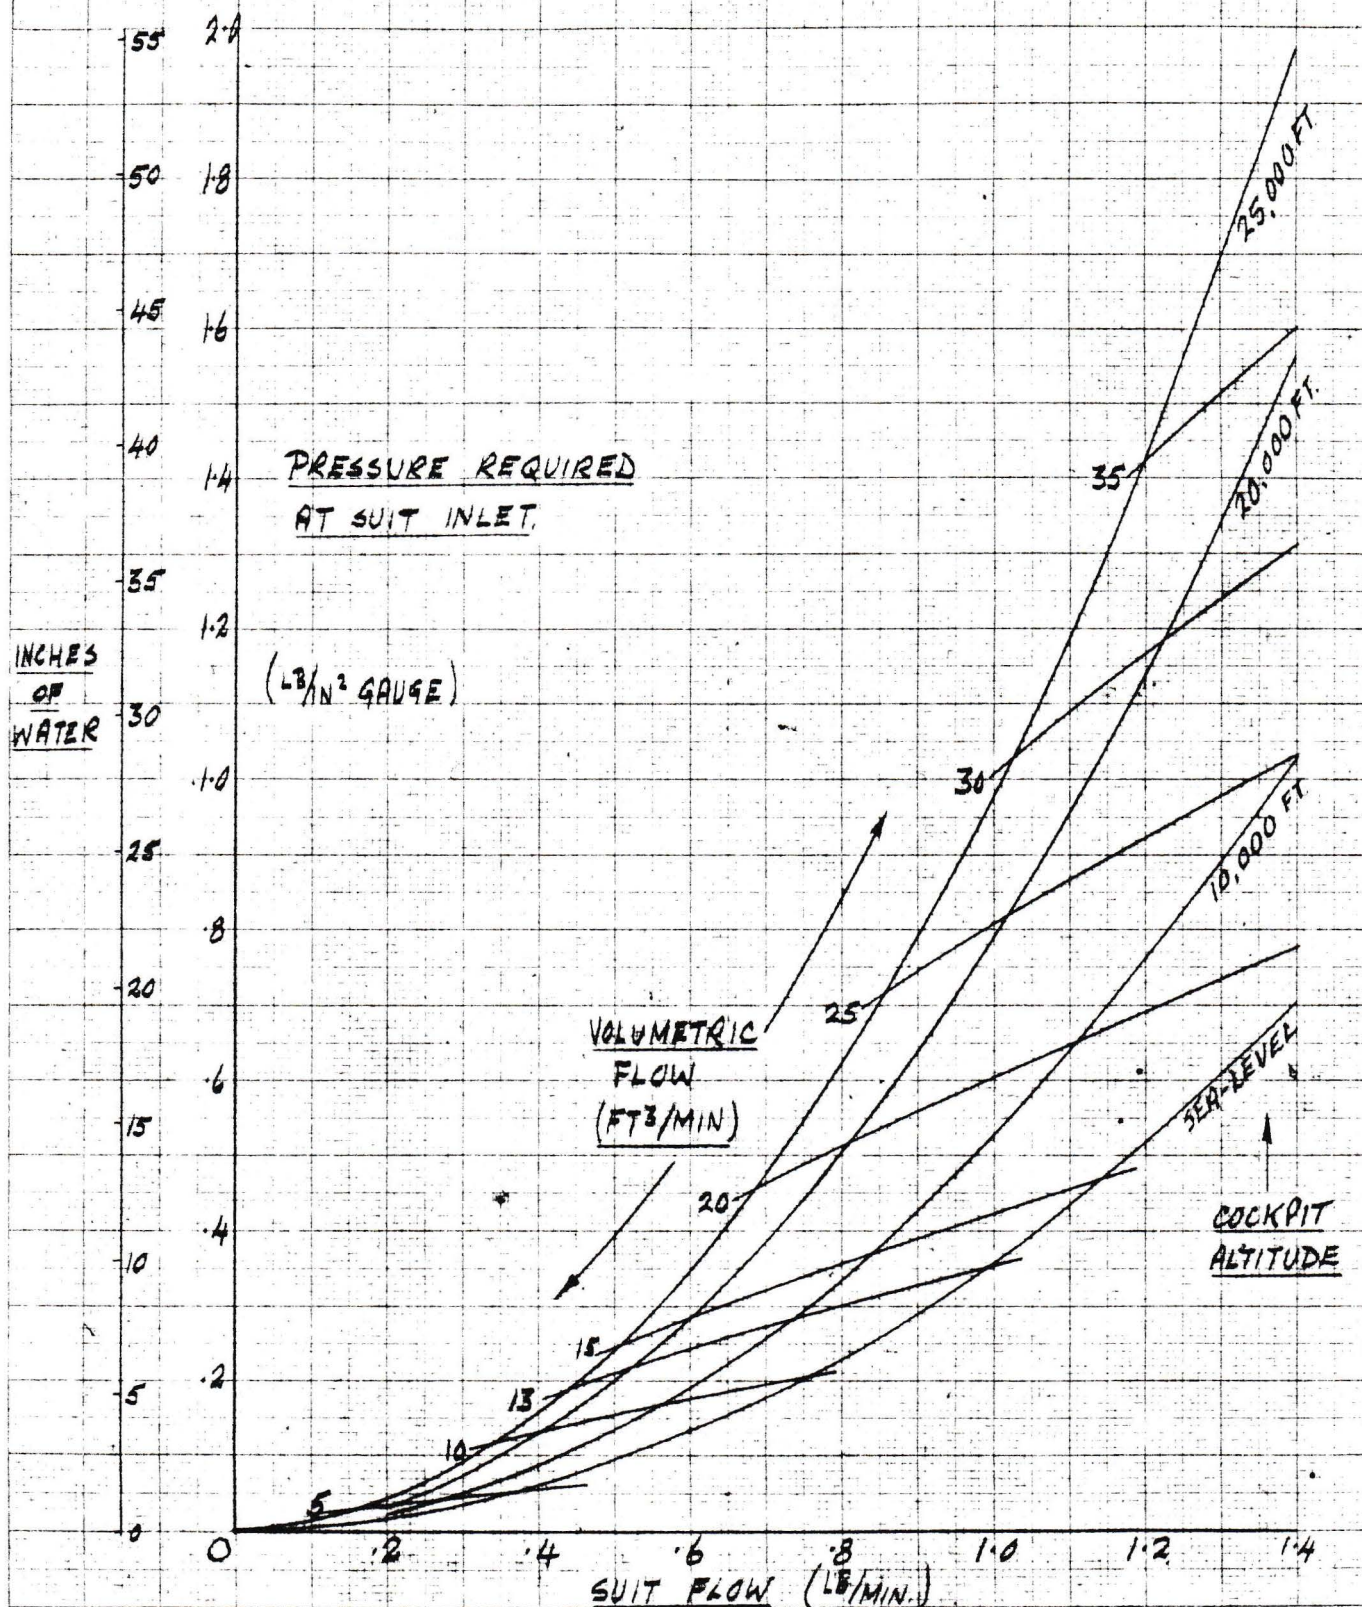 55
50
45
40
35
30
25
20
15
10
5
0
INCHES
OF
WATER
2.0
1.8
1.6
1.4
1.2
1.0
.8
.6
.4
.2
PRESSURE REQUIRED
AT SUIT INLET.
(LB/IN² GAUGE)
VOLUMETRIC
FLOW
(FT³/MIN)
35
30
25
20
15
13
10
5
25,000 FT.
20,000 FT.
10,000 FT
SEA-LEVEL
COCKPIT
ALTITUDE
0 .2 .4 .6 .8 1.0 1.2 1.4
SUIT FLOW (LB/MIN.)